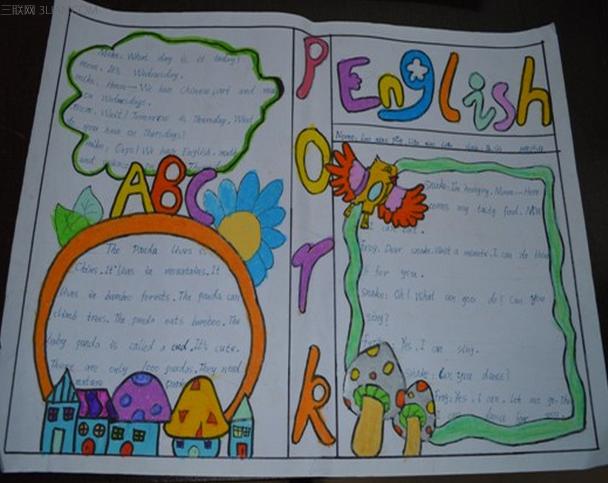 三联网 3LIAN.COM
Mike: What day is it today?
Mom: It's Wednesday.
Mike: Hmm--- We have Chinese, art and
on Wednesdays.
Mom: Wait! Tomorrow is Thursday. What
do you have on Thursdays?
Mike: Oops! We have English, math
and
ABC
The Panda lives in
China. It lives in mountains. It
lives in bamboo forests. The panda can
climb trees. The panda eats bamboo. The
baby panda is called a cud. It's cute.
There are only 1000 pandas. They need
nature
P
O
r
k
English
Name:
snake: I'm hungry. Mmm--Here
comes my tasty food. Mm
I can eat.
frog: Dear snake. Wait a minute. I can do
for you.
snake: Oh! What can you do? Can you
sing?
Yes, I can sing.
snake: Can you dance?
frog: Yes, I can. Let me go, then
I can dance for you.